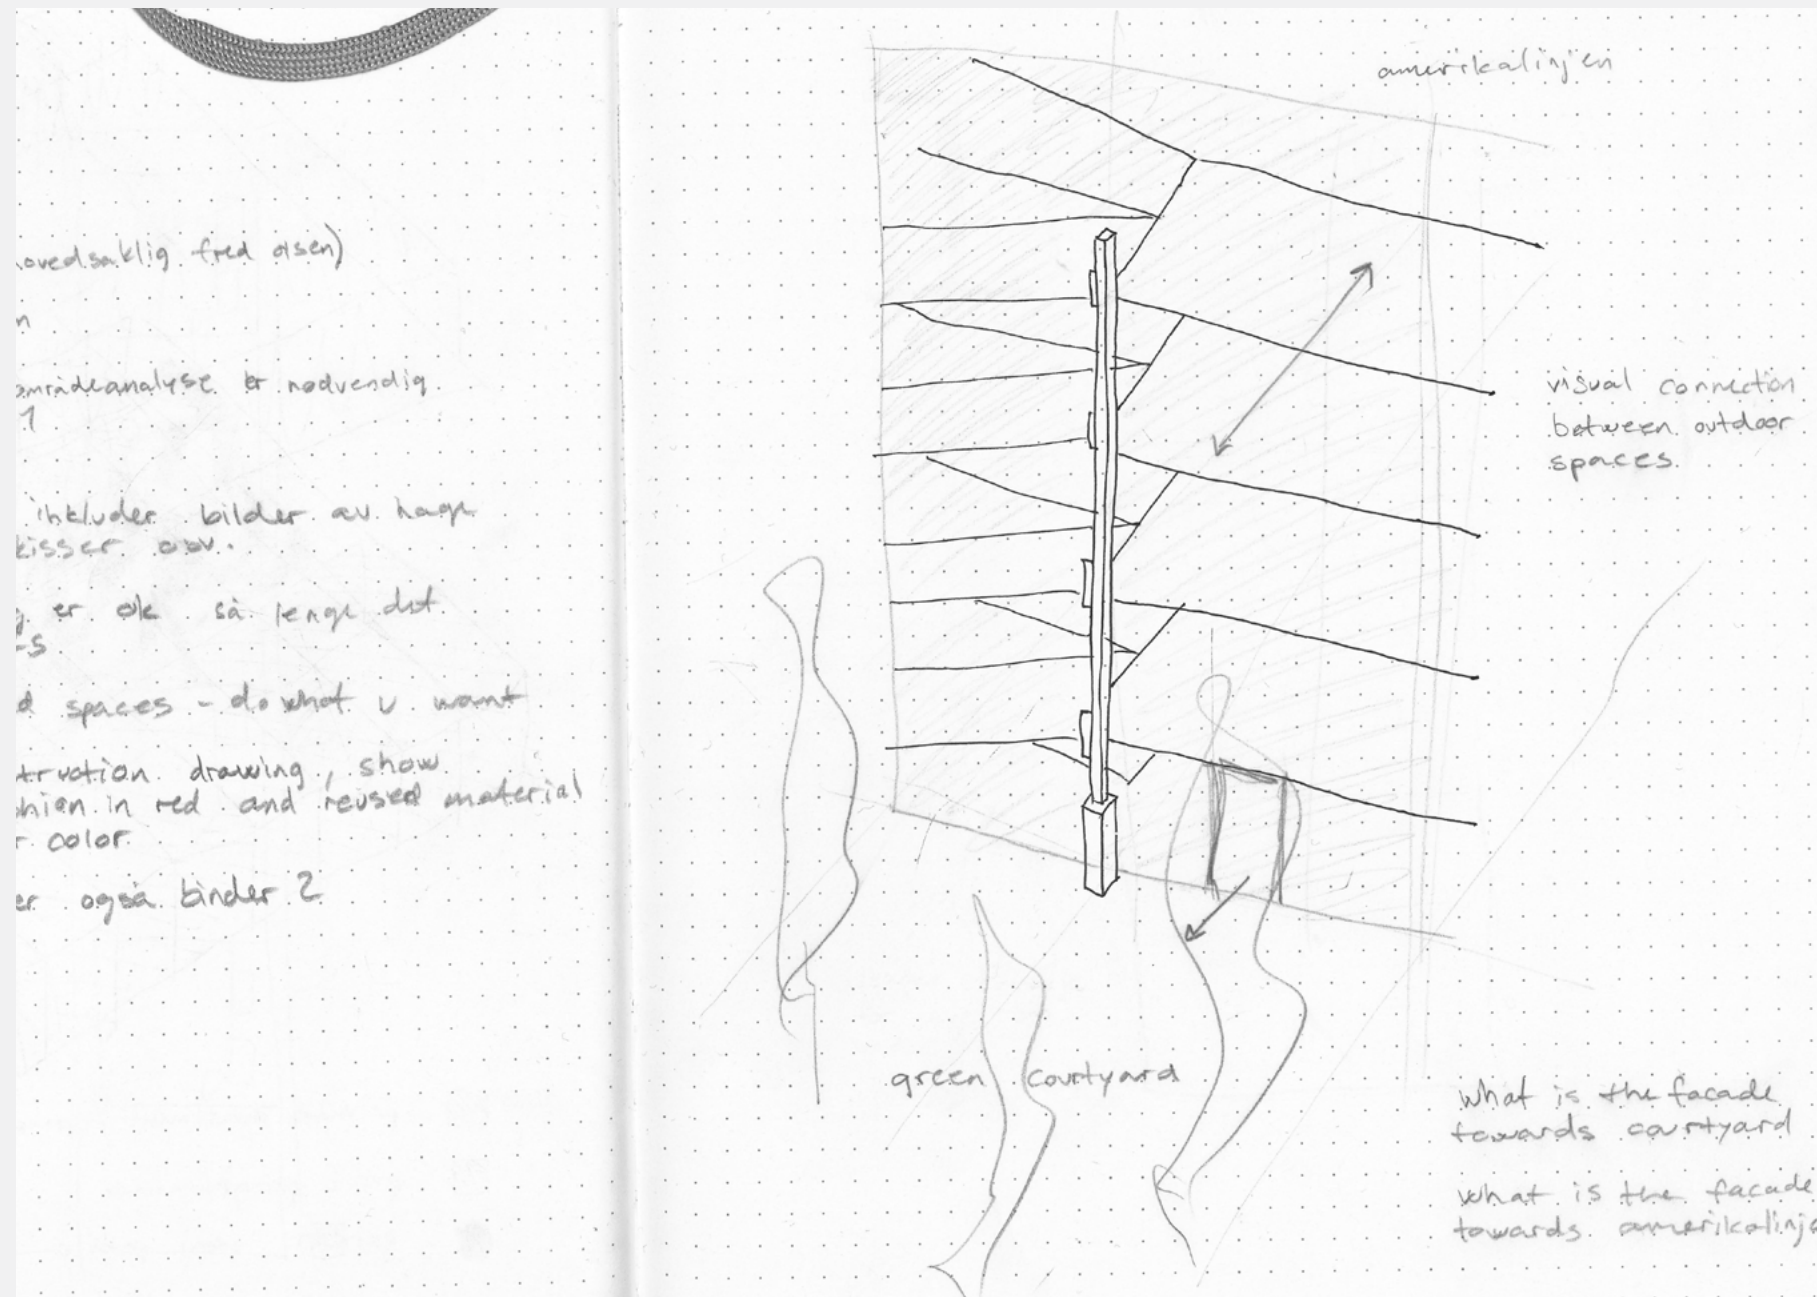 ovedsaklig fred olsen)
n
områdeanalyse er nødvendig
1
inkluder bilder av hage
kisser osv.
g er ok så lenge det
s
d spaces - do what u want
truction drawing, show
in red and reused material
r color
er også binder 2
amerikalinjen
visual connection
between outdoor
spaces
green courtyard
what is the facade
towards courtyard
what is the facade
towards amerikalinje